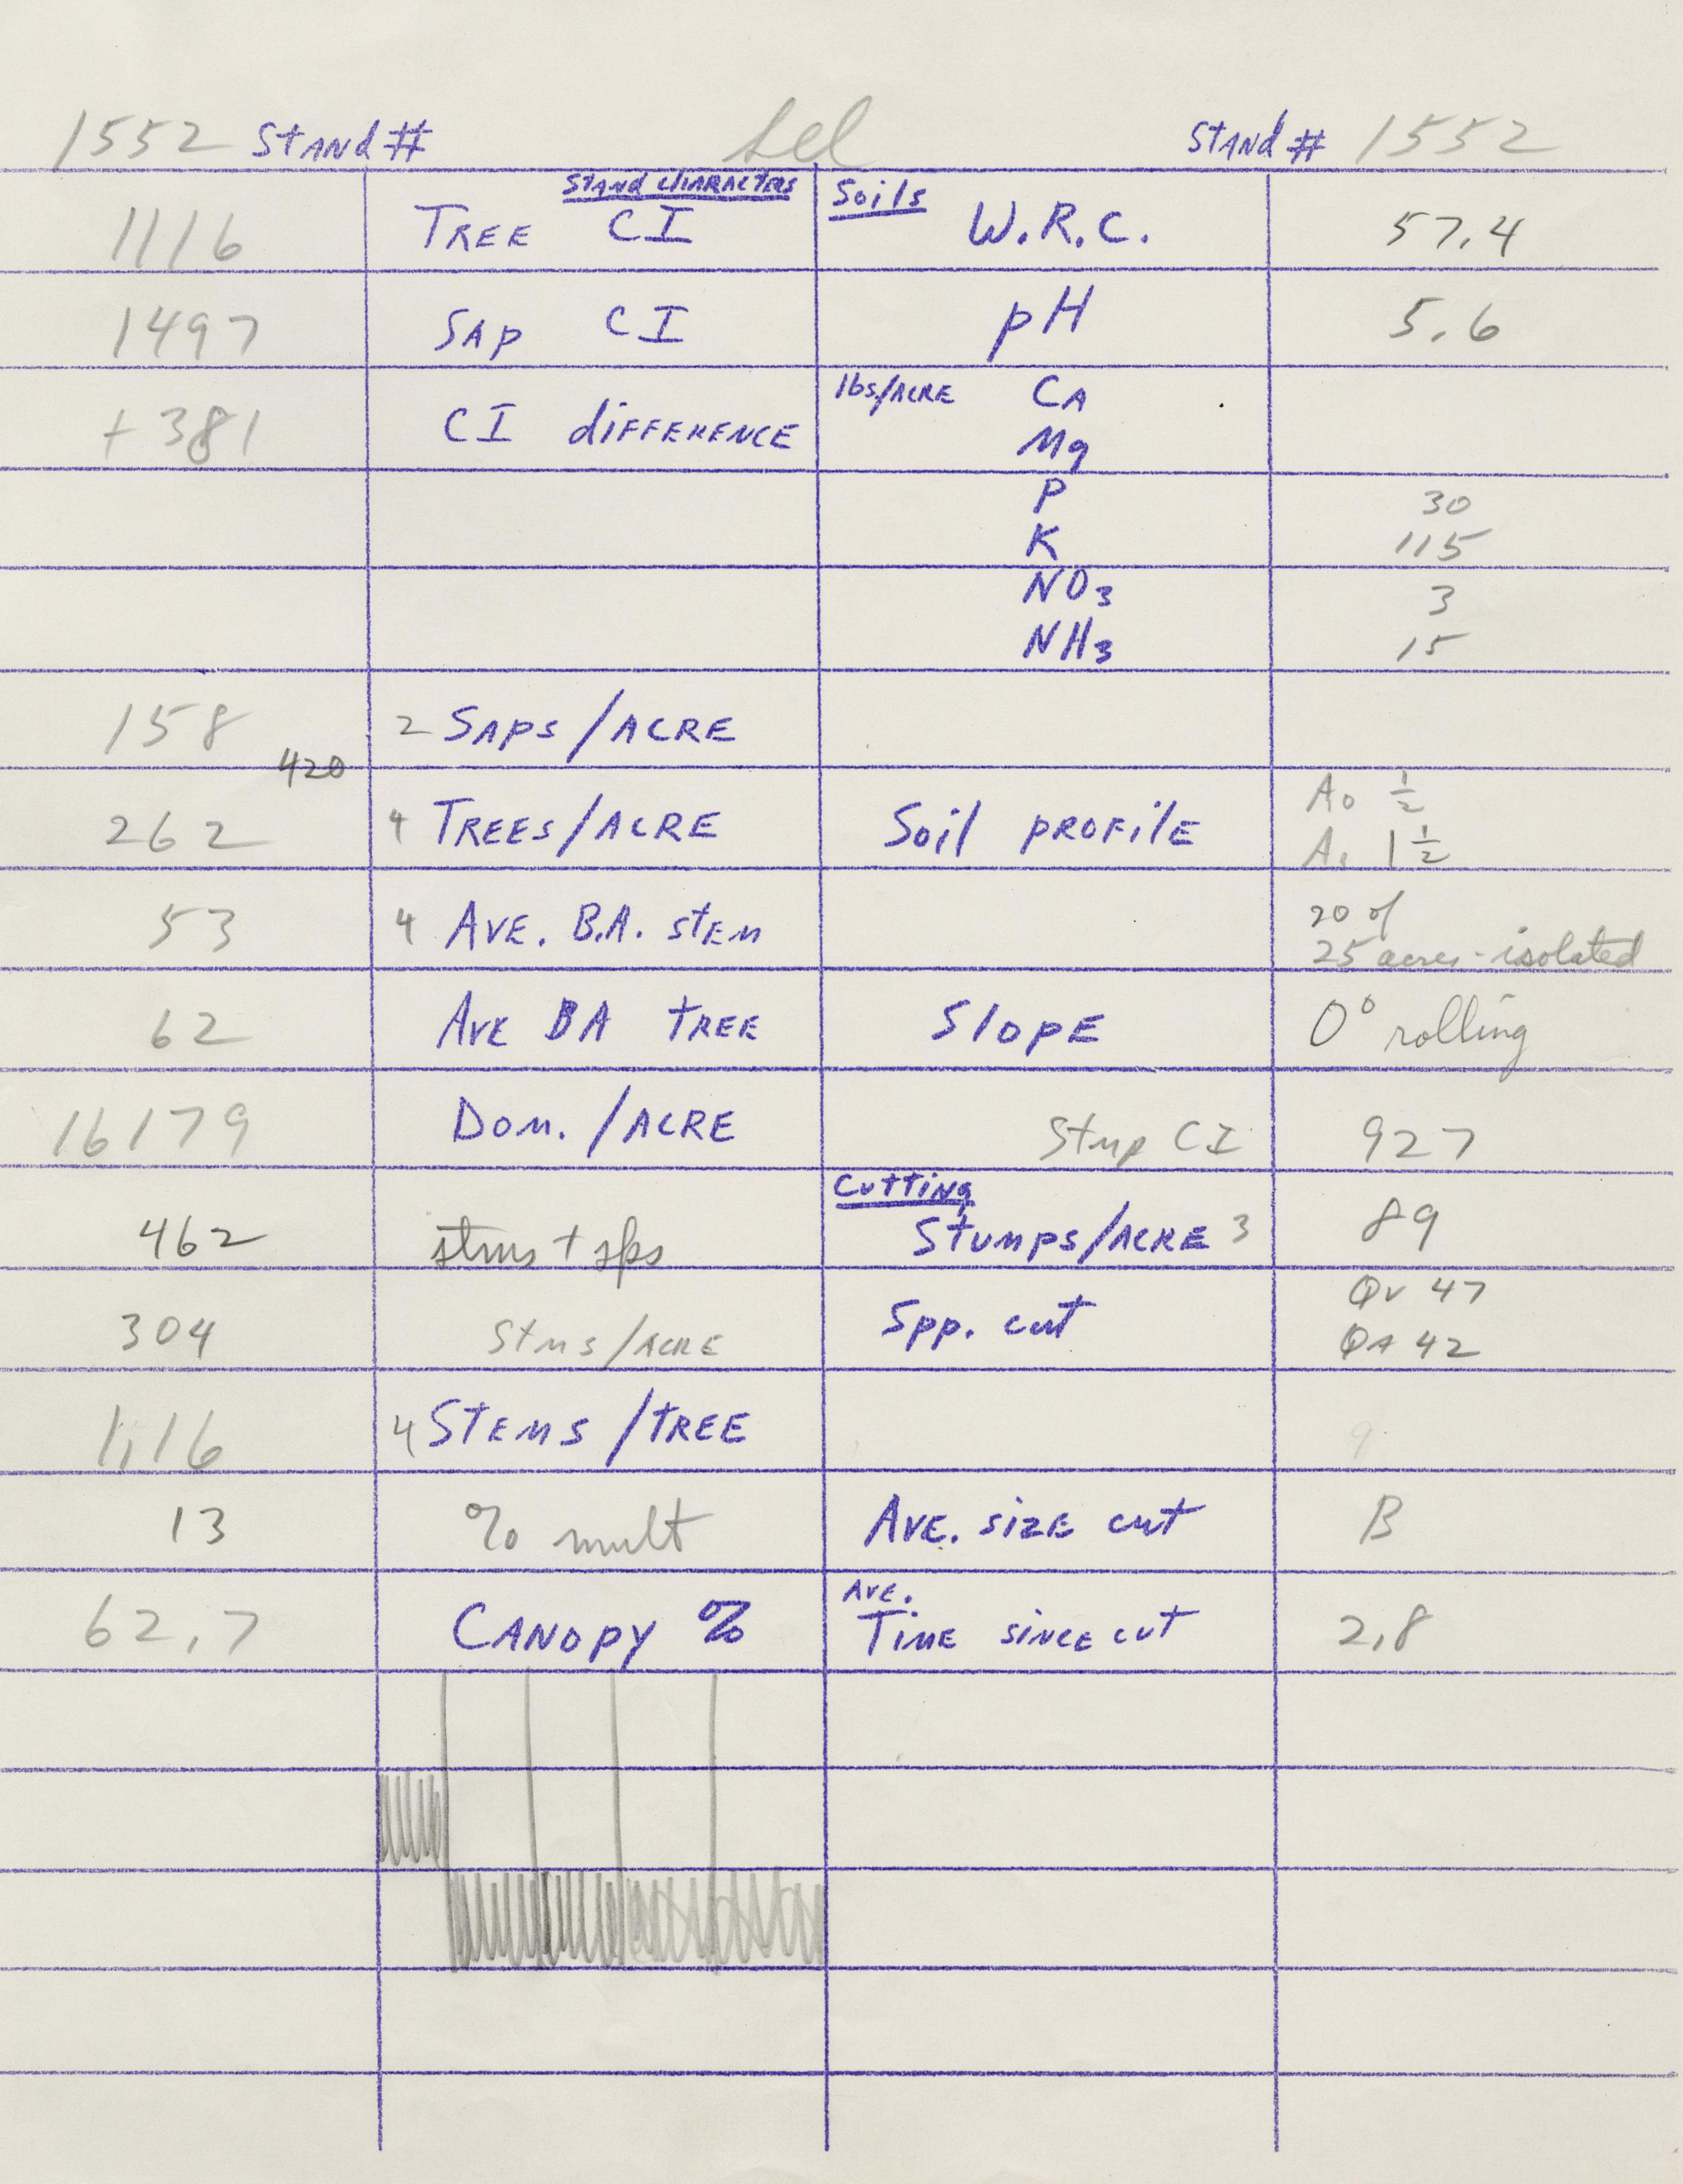 1552 Stand # Sel Stand # 1552
Stand Characters Soils
1116 Tree CI W.R.C. 57.4
1497 Sap CI pH 5.6
+381 CI difference lbs/Acre Ca
Mg
P 30
K 115
NO3 3
NH3 15
158 2 Saps/Acre
420
262 4 Trees/Acre Soil profile A0 1/2
A1 1 1/2
53 4 Ave. B.A. stem 20 of
25 acres - isolated
62 Ave BA tree Slope 0° rolling
16179 Dom./Acre Stmp CI 927
Cutting
462 stms + sps Stumps/Acre 3 89
304 Stms/Acre Spp. cut Qv 47
QA 42
1.16 4 Stems/tree 9
13 % mult Ave. size cut B
62.7 Canopy % Ave.
Time since cut 2.8